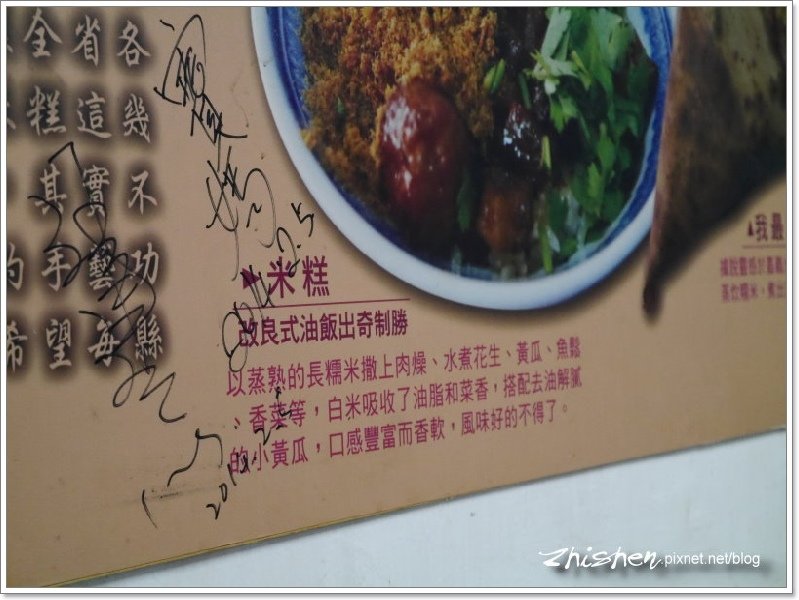 全省各
糕這幾
其實不
的手藝功
希望每縣
▲米糕
改良式油飯出奇制勝
以蒸熟的長糯米撒上肉燥、水煮花生、黃瓜、魚鬆
、香菜等，白米吸收了油脂和菜香，搭配去油解膩
的小黃瓜，口感豐富而香軟，風味好的不得了。
▲我最
據說靈感於嘉義
蒸炊糯米，煮出
zhishen.pixnet.net/blog